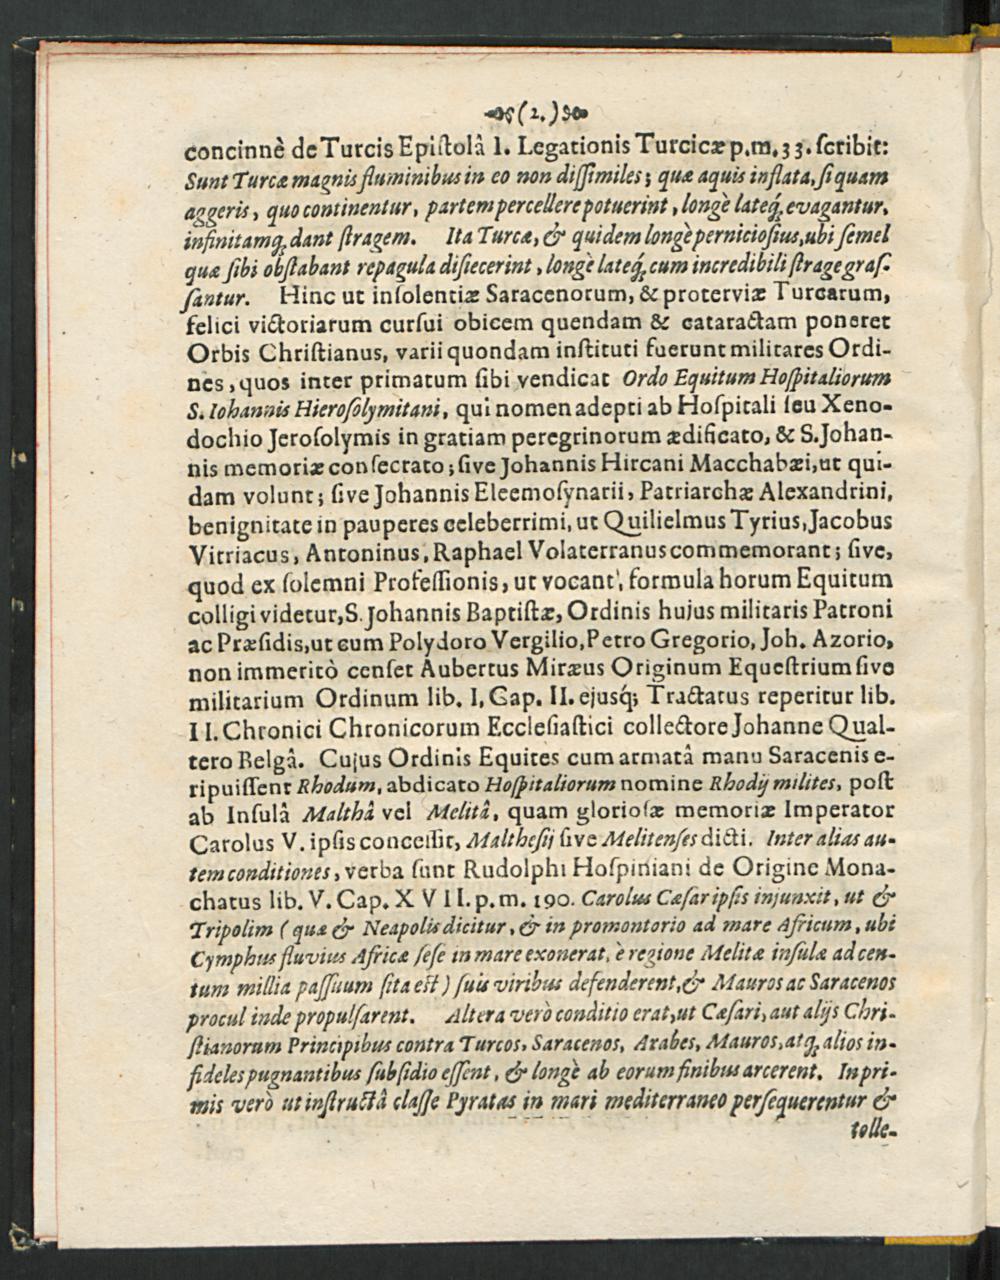 (2.)
concinnè de Turcis Epiſtolâ 1. Legationis Turcicæ p.m.33. ſcribit:
Sunt Turcæ magnis fluminibus in eo non diſſimiles; quæ aquis inflata, ſi quam
aggeris, quo continentur, partem percellere potuerint, longè lateq́, evagantur,
infinitamq́, dant ſtragem. Ita Turcæ, & quidem longè pernicioſius, ubi ſemel
quæ ſibi obſtabant repagula disiecerint, longè lateq́, cum incredibili ſtrage graſ-
ſantur. Hinc ut inſolentiæ Saracenorum, & proterviæ Turcarum,
felici victoriarum curſui obicem quendam & cataractam poneret
Orbis Chriſtianus, varii quondam inſtituti fuerunt militares Ordi-
nes, quos inter primatum ſibi vendicat Ordo Equitum Hoſpitaliorum
S. Iohannis Hieroſolymitani, qui nomen adepti ab Hoſpitali ſeu Xeno-
dochio Jeroſolymis in gratiam peregrinorum ædificato, & S. Johan-
nis memoriæ conſecrato; ſive Johannis Hircani Macchabæi, ut qui-
dam volunt; ſive Johannis Eleemoſynarii, Patriarchæ Alexandrini,
benignitate in pauperes celeberrimi, ut Quilielmus Tyrius, Jacobus
Vitriacus, Antoninus, Raphael Volaterranus commemorant; ſive,
quod ex ſolemni Profeſſionis, ut vocant, formula horum Equitum
colligi videtur, S. Johannis Baptiſtæ, Ordinis hujus militaris Patroni
ac Præſidis, ut cum Polydoro Vergilio, Petro Gregorio, Joh. Azorio,
non immeritò cenſet Aubertus Miræus Originum Equeſtrium ſive
militarium Ordinum lib. I. Cap. II. ejusq́; Tractatus reperitur lib.
II. Chronici Chronicorum Eccleſiaſtici collectore Johanne Qual-
tero Belgâ. Cujus Ordinis Equites cum armatâ manu Saracenis e-
ripuiſſent Rhodum, abdicato Hoſpitaliorum nomine Rhodij milites, poſt
ab Inſulâ Malthâ vel Melitâ, quam glorioſæ memoriæ Imperator
Carolus V. ipſis conceſſit, Maltheſij ſive Melitenſes dicti. Inter alias au-
tem conditiones, verba ſunt Rudolphi Hoſpiniani de Origine Mona-
chatus lib. V. Cap. XVII. p.m. 190. Carolus Cæſar ipſis injunxit, ut &
Tripolim (quæ & Neapolis dicitur, & in promontorio ad mare Africum, ubi
Cymphus fluvius Africæ ſeſe in mare exonerat, è regione Melitæ inſulæ ad cen-
tum millia paſſuum ſita eſt) ſuis viribus defenderent, & Mauros ac Saracenos
procul inde propulſarent. Altera verò conditio erat, ut Cæſari, aut alijs Chri-
ſtianorum Principibus contra Turcos, Saracenos, Arabes, Mauros, atq́, alios in-
fideles pugnantibus ſubſidio eſſent, & longè ab eorum finibus arcerent. Inpri-
mis verò ut inſtructâ claſſe Pyratas in mari mediterraneo perſequerentur &
tolle-